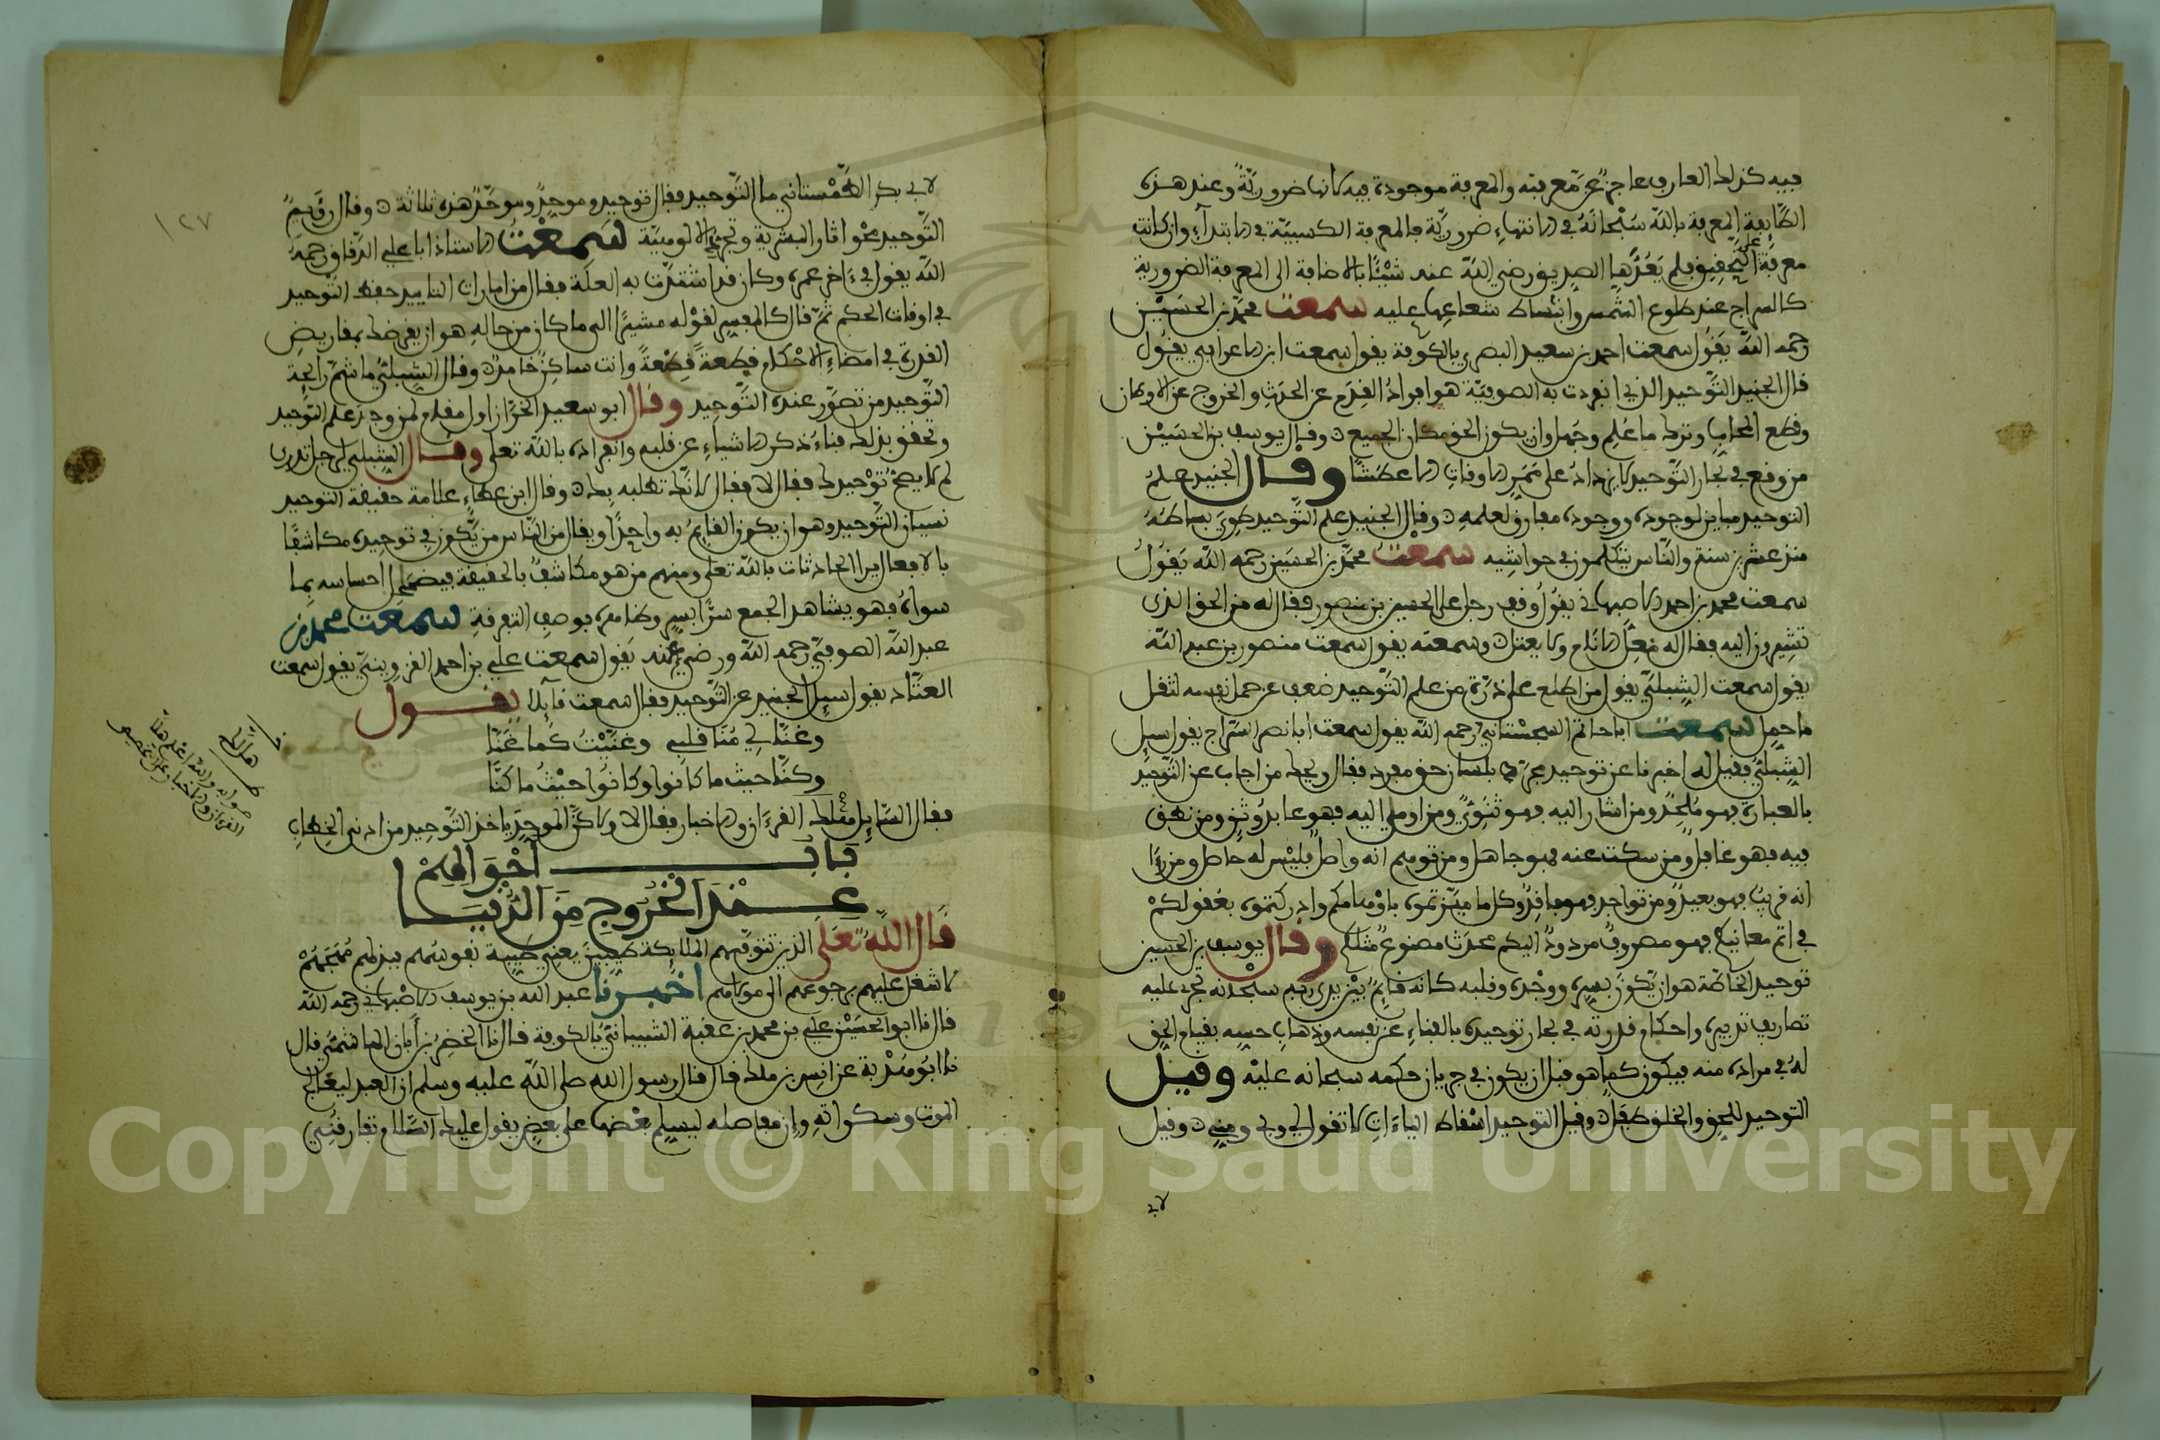 فيه كذلك العارف عاجز عن معرفته والمعرفة موجودة فيه لانها ضرورية وعند هذه
الطايفة المعرفة بالله سبحانه في الانتهاء ضرورية فالمعرفة الكسبية في الابتداء وان كانت
معرفة على التحقيق فلم يعدها الصديق رضي الله عنه شيئا بالاضافة الى المعرفة الضرورية
كالسراج عند طلوع الشمس وانبساط شعاعها عليه سمعت محمد بن الحسين
رحمه الله يقول سمعت احمد بن سعيد البصري بالكوفة يقول سمعت ابن الاعرابي يقول
قال الجنيد التوحيد الذي انفردت به الصوفية هو افراد القدم عن الحدث والخروج عن الاوطان
وقطع المحاب وترك ما علم وجهل وان يكون الحق مكان الجميع وقال يوسف بن الحسين
من وقع في بحار التوحيد لا يزداد على ممر الاوقات الا عطشا وقال الجنيد علم
التوحيد مباين لوجوده ووجوده مفارق لعلمه وقال الجنيد علم التوحيد طوي بساطه
منذ عشرين سنة والناس يتكلمون في حواشيه سمعت محمد بن الحسين رحمه الله يقول
سمعت محمد بن احمد الاصبهاني يقول وقف رجل على الحسين بن منصور فقال له من الحق الذي
تشيرون اليه فقال له معل الانام ولا يعتل وسمعته يقول سمعت منصور بن عبد الله
يقول سمعت الشبلي يقول من اطلع على ذرة من علم التوحيد ضعف عن حمل نفسه لثقل
ما حمل سمعت ابا حاتم السجستاني رحمه الله يقول سمعت ابا نصر السراج يقول سيل
الشبلي فقيل له اخبرنا عن توحيد مجرد بلسان حق مفرد فقال ويحك من اجاب عن التوحيد
بالعبارة فهو ملحد ومن اشار اليه فهو ثنوي ومن اومى اليه فهو عابد وثن ومن نطق
فيه فهو غافل ومن سكت عنه فهو جاهل ومن توهم انه واصل فليس له حاصل ومن رءا
انه قريب فهو بعيد ومن تواجد فهو فاقد وكل ما ميزتموه باوهامكم وادركتموه بعقولكم
في اتم معانيكم فهو مصروف مردود اليكم محدث مصنوع مثلكم وقال يوسف بن الحسين
توحيد الخاصة هو ان يكون بسره ووجده وقلبه كانه قايم بين يدي الله سبحانه تجري عليه
تصاريف تدبيره واحكام قدرته في بحار توحيده بالفناء عن نفسه وذهاب حسه بقيام الحق
له في مراده منه فيكون كما هو قبل ان يكون في جريان حكمه سبحانه عليه وقيل
التوحيد للحق والخلق طفل وقيل التوحيد اسقاط الياءات لا تقول لي وبي ومني وقيل
لابي
لابي بكر الطمستاني ما التوحيد فقال توحيد وموحد وموحد هذه ثلاثة وقال رويم
١٢٧
التوحيد محو اثار البشرية وتجريد الالوهية سمعت الاستاذ ابا علي الدقاق رحمه
الله يقول في ءاخر عمره وكان قد اشتدت به العلة فقال من امارات التاييد حفظ التوحيد
في اوقات الحكم ثم قال كالمفسر لقوله مشيرا الى ما كان من حاله هو ان يقرضك بمقاريض
القدرة في امضاء الاحكام قطعة قطعة وانت ساكن خامد وقال الشبلي ما شم رايحة
التوحيد من تصور عنده التوحيد وقال ابو سعيد الخراز اول مقام لمن وجد علم التوحيد
وتحقق بذلك فناء ذكر الاشياء عن قلبه وانفراده بالله تعلى وقال الشبلي لرجل تدري
لم لا يصح توحيدك فقال لا فقال لانك تطلبه بك وقال ابن عطاء علامة حقيقة التوحيد
نسيان التوحيد وهو ان يكون القايم به واحدا ويقال من الناس من يكون في توحيده مكاشفا
بالافعال يرا الحادثات بالله تعلى ومنهم من هو مكاشف بالحقيقة فيضمحل احساسه بما
سواه فهو يشاهد الجمع سرا بسر وظاهره بوصف التفرقة سمعت محمد بن
عبد الله الصوفي رحمه الله ورضي عنه يقول سمعت علي بن احمد القزويني يقول سمعت
العتاد يقول سيل الجنيد عن التوحيد فقال سمعت قايلا يقول
وغنا لي منا قلبي وغنيت كما غنا
وكنا حيث ما كانوا وكانوا حيث ما كنا
فقال السايل القرءان والاخبار فقال لا ولاكن الموحد ياخذ التوحيد من ادنى الخطاب
باب احوالهم
عند الخروج من الدنيا
قال الله تعلى الذين تتوفيهم الملايكة طيبين يعني طيبة نفوسهم ببذلهم مهجهم
لا ثقل عليهم برجوعهم الى مولاهم اخبرنا عبد الله بن يوسف الاصبهاني رحمه الله
قال نا ابو الحسين علي بن محمد بن عقبة الشيباني بالكوفة قال نا الخضر بن ابان الهاشمي قال
نا ابو هدبة عن انس بن ملك قال قال رسول الله صلى الله عليه وسلم ان العبد ليعالج
الموت وسكراته وان مفاصله ليسلم بعضها على بعض يقول عليك السلام تفارقني